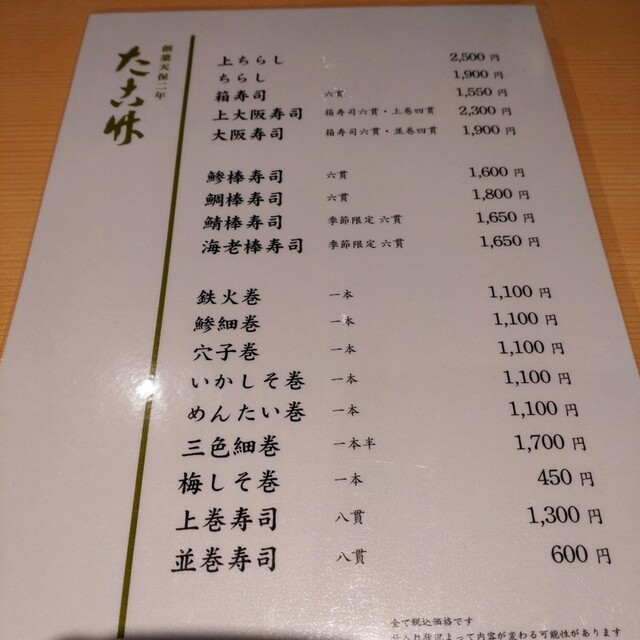 創業天保二年
たこ竹
上ちらし 2,500 円
ちらし 1,900 円
箱寿司 六貫 1,550 円
上大阪寿司 箱寿司六貫・上巻四貫 2,300 円
大阪寿司 箱寿司六貫・並巻四貫 1,900 円
鯵棒寿司 六貫 1,600 円
鯛棒寿司 六貫 1,800 円
鯖棒寿司 季節限定 六貫 1,650 円
海老棒寿司 季節限定 六貫 1,650 円
鉄火巻 一本 1,100 円
鯵細巻 一本 1,100 円
穴子巻 一本 1,100 円
いかしそ巻 一本 1,100 円
めんたい巻 一本 1,100 円
三色細巻 一本半 1,700 円
梅しそ巻 一本 450 円
上巻寿司 八貫 1,300 円
並巻寿司 八貫 600 円
全て税込価格です
仕入れ状況よって内容が変わる可能性があります